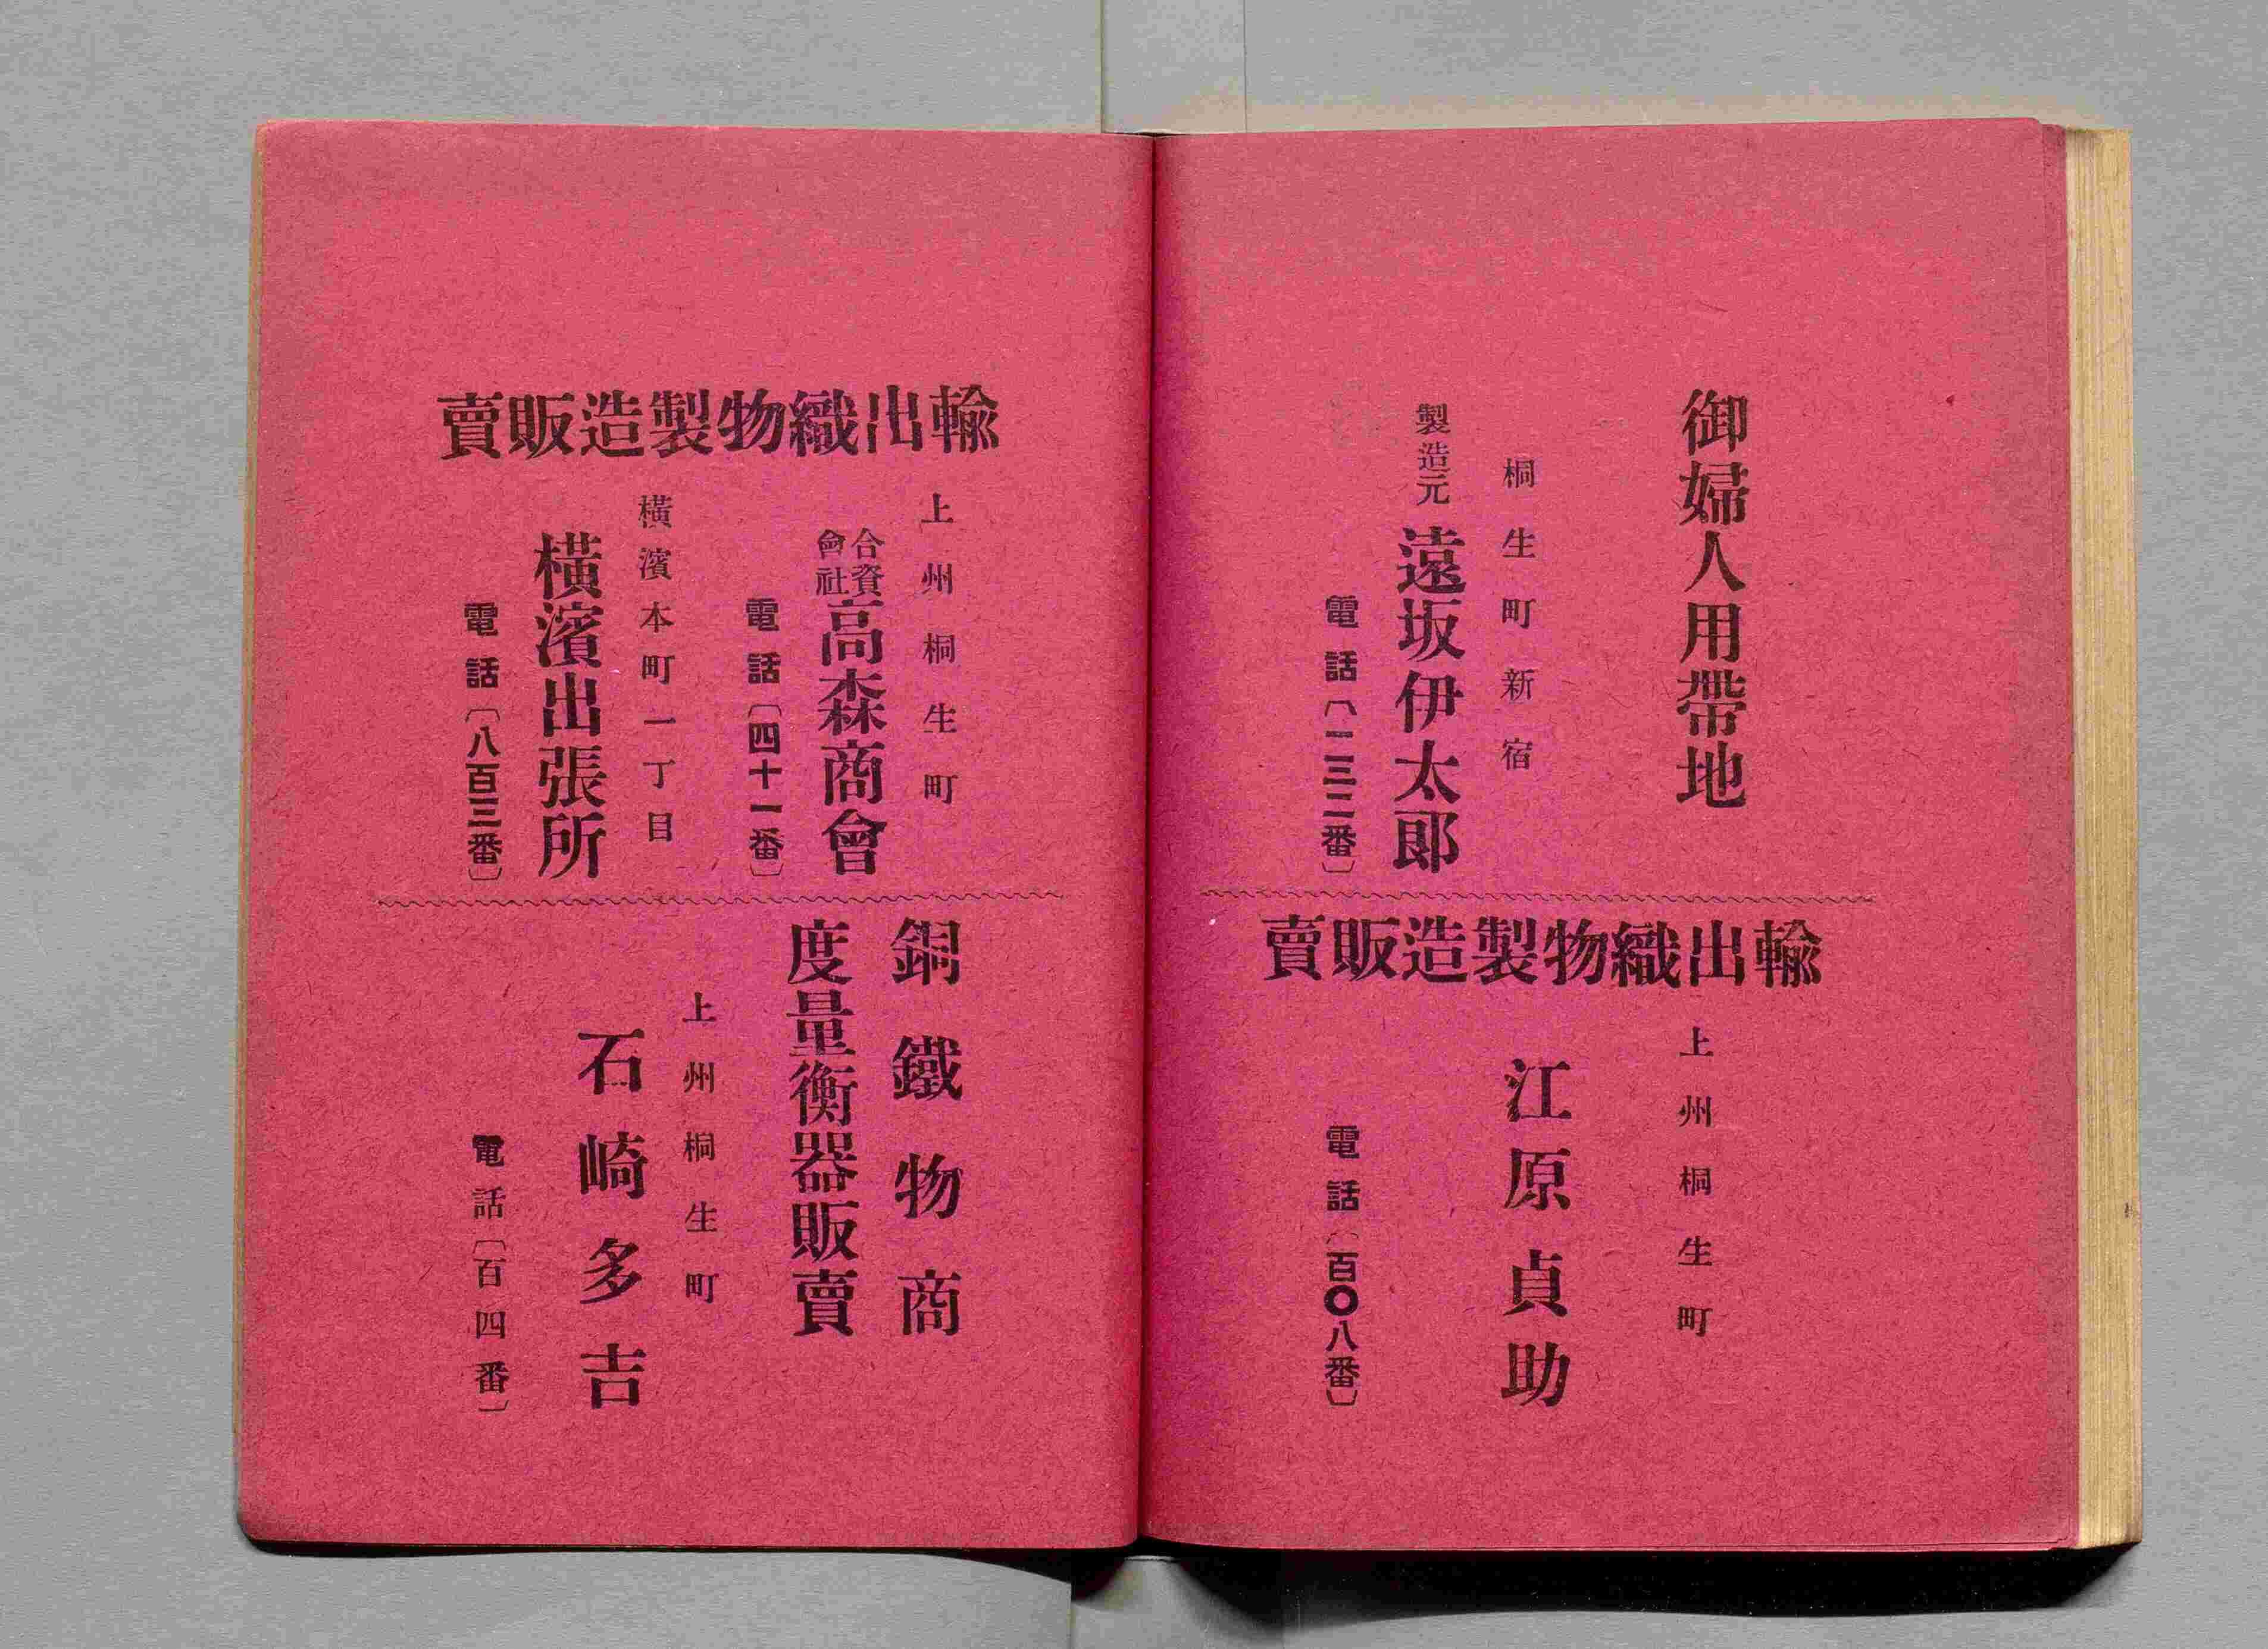 御婦人用帶地
桐生町新宿
製造元 遠坂伊太郎
電話〔一三二番〕
輸出織物製造販賣
上州桐生町
江原貞助
電話〔百〇八番〕
輸出織物製造販賣
上州桐生町
合資會社高森商會
電話〔四十一番〕
橫濱本町一丁目
橫濱出張所
電話〔八百三番〕
銅鐵物商
度量衡器販賣
上州桐生町
石崎多吉
電話〔百四番〕